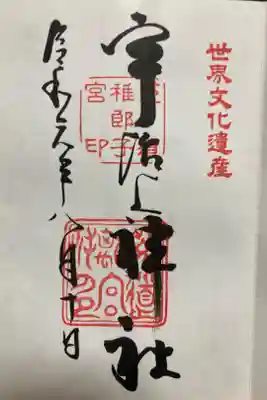 世界文化遺産
宇治上神社
稚郎子
宮印
令和六年八月十日